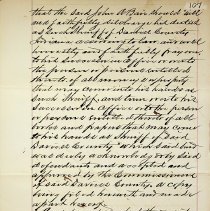 107
that the said John A Bair should well
and faithfully discharge his duties
as such Sheriff of Daviess County
Indiana according to law and well
and truly and faithfully pay over
to his successor in office or unto
the person or persons entitled
thereto, all moneys & property
that may come into his hands as
such Sheriff and turn over to his
successor in Office or to the person
or persons entitled thereto of all
books and papers that may come
to his hands as Sheriff of Said
Daviess County Which said bond
was duly acknowledged by said
defendants and accepted and
approved by the Commissioners
of said Daviess County, a copy
your is filed herewith and made
a part hereof